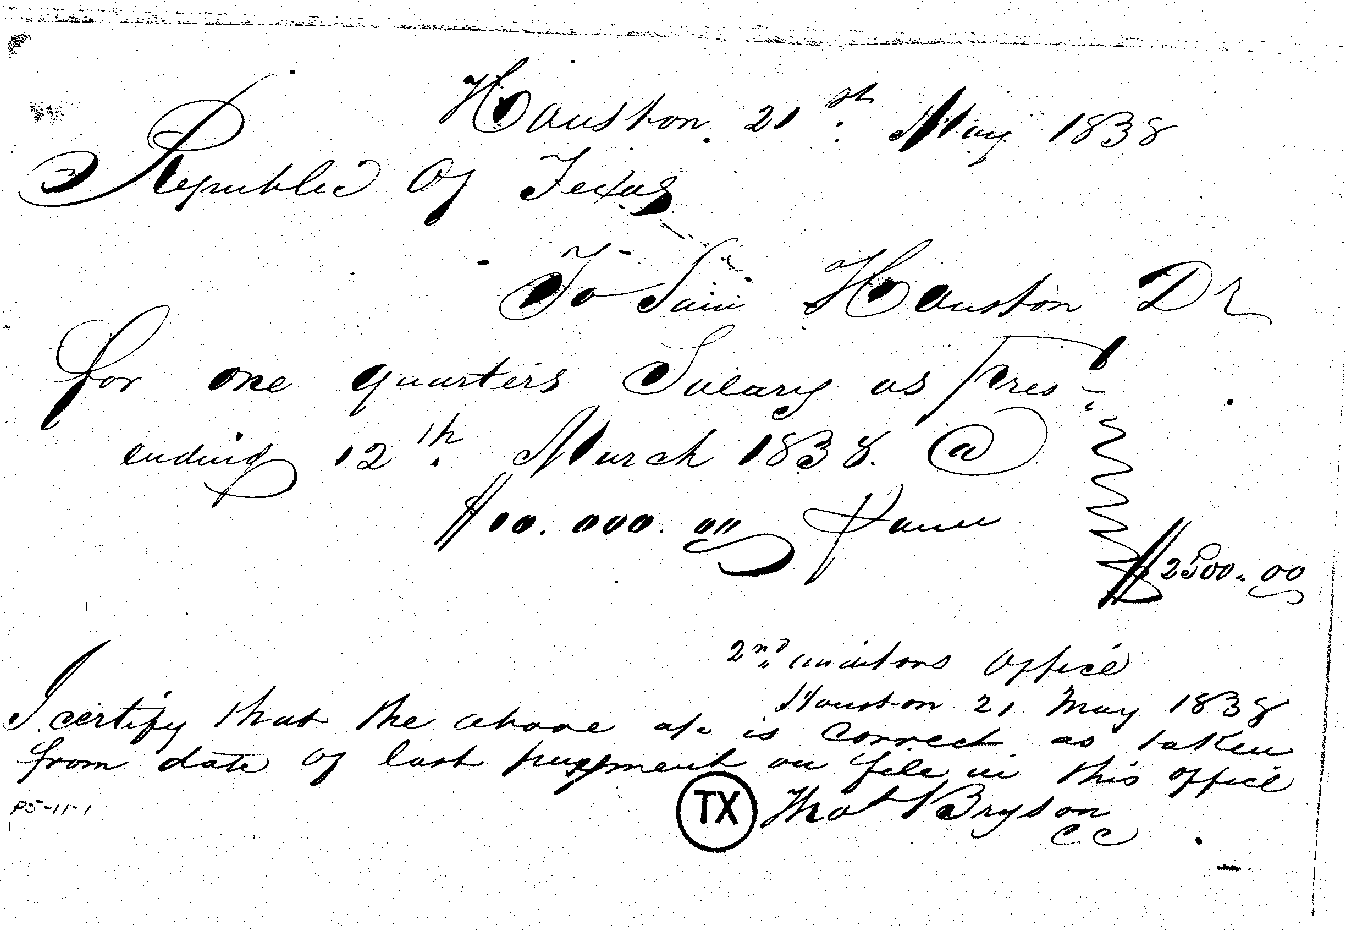 Houston. 21st. May 1838
Republic Of Texas
To Sam Houston Dr
For one quarters Salary as Prest
ending 12th. March 1838. @
$10.000.00 P annu
$2500.00
2nd Auditors Office
Houston 21 May 1838
I certify that the above a/c is correct as taken
from date of last payment on file in this office
TX
Thos Bryson
CC
P5-11-1